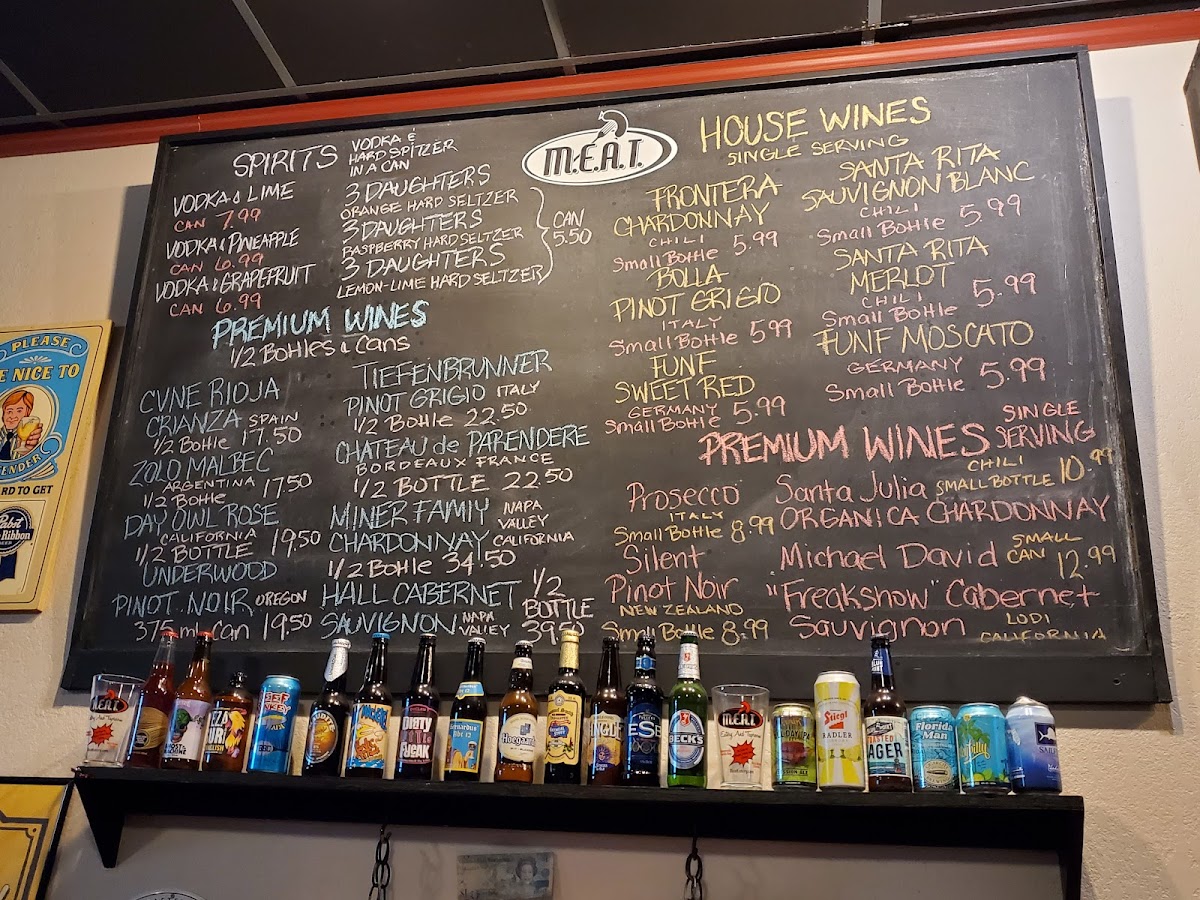 M.E.A.T.
SPIRITS
VODKA &
HARD SPITZER
IN A CAN
VODKA & LIME
CAN 7.99
VODKA & PINEAPPLE
CAN 6.99
VODKA & GRAPEFRUIT
CAN 6.99
3 DAUGHTERS
ORANGE HARD SELTZER
3 DAUGHTERS
RASPBERRY HARD SELTZER
3 DAUGHTERS
LEMON-LIME HARD SELTZER
CAN
5.50
PREMIUM WINES
1/2 Bottles & Cans
CVNE RIOJA
CRIANZA SPAIN
1/2 Bottle 17.50
ZOLO MALBEC
ARGENTINA
1/2 Bottle 17.50
DAY OWL ROSE
CALIFORNIA
1/2 BOTTLE 19.50
UNDERWOOD
PINOT NOIR OREGON
375 ml Can 19.50
TIEFENBRUNNER
PINOT GRIGIO ITALY
1/2 Bottle 22.50
CHATEAU de PARENDERE
BORDEAUX FRANCE
1/2 BOTTLE 22.50
MINER FAMIY NAPA
VALLEY
CHARDONNAY CALIFORNIA
1/2 Bottle 34.50
HALL CABERNET
SAUVIGNON NAPA
VALLEY
1/2
BOTTLE
39.50
HOUSE WINES
SINGLE SERVING
FRONTERA
CHARDONNAY
CHILI
Small Bottle 5.99
BOLLA
PINOT GRIGIO
ITALY
Small Bottle 5.99
FUNF
SWEET RED
GERMANY
Small Bottle 5.99
SANTA RITA
SAUVIGNON BLANC
CHILI
Small Bottle 5.99
SANTA RITA
MERLOT
CHILI
Small Bottle 5.99
FUNF MOSCATO
GERMANY
Small Bottle 5.99
PREMIUM WINES SINGLE
SERVING
Prosecco
ITALY
Small Bottle 8.99
Silent
Pinot Noir
NEW ZEALAND
Small Bottle 8.99
Santa Julia CHILI
SMALL BOTTLE 10.99
ORGANICA CHARDONNAY
Michael David SMALL
CAN 12.99
"Freakshow" Cabernet
Sauvignon LODI
CALIFORNIA
PLEASE
E NICE TO
ENDER
RD TO GET
Pabst
Ribbon
M.E.A.T.
DIRTY
FUCAK
Bernardus
ESB
BECK'S
M.E.A.T.
Stiegl
RADLER
LAGER
Florida
Man